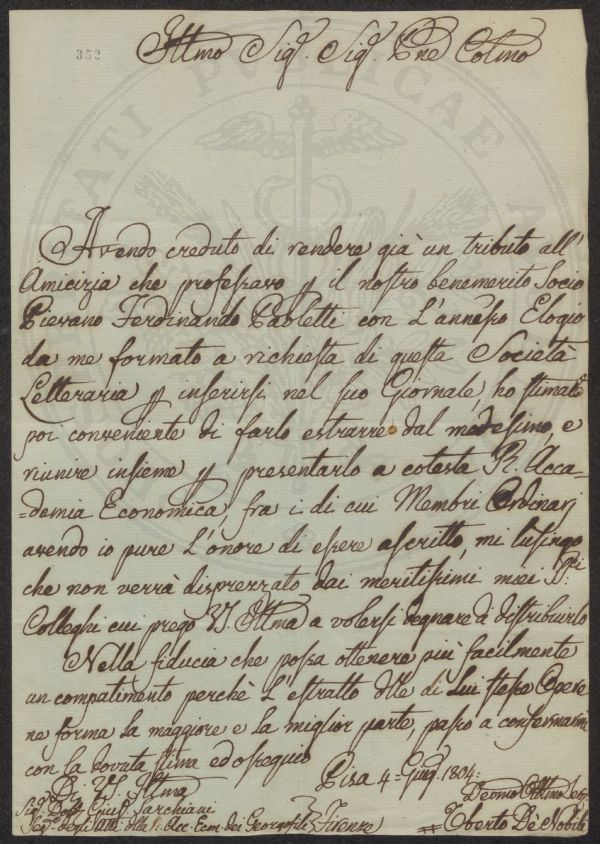 352
Illmo Sigr. Sigr. Pne Colmo
Avendo creduto di rendere già un tributo all'
Amicizia che professavo p il nostro benemerito Socio
Pievano Ferdinando Paoletti con L'annesso Elogio
da me formato a richiesta di questa Società
Letteraria p inserirsi nel suo Giornale, ho stimato
poi conveniente di farlo estrarre dal medesimo, e
riunire insieme p presentarlo a cotesta R. Acca-
=demia Economica, fra i di cui Membri Ordinarj
avendo io pure L'onore di essere ascritto, mi lusingo
che non verrà disprezzato dai meritissimi miei SSri
Colleghi cui prego VS. Illma a volersi degnare di distribuirlo
Nella fiducia che possa ottenere più facilmente
un compatimento perchè L'estratto dlle di Lui stesso Opere
ne forma la maggiore e la miglior parte, passo a confermarmi
con la dovuta stima ed ossequio
Di VS. Illma
Pisa 4= Giug. 1804.
Sigr. Dott. Giusp. Sarchiani
Devmo Obblmo Servo
Segr. degli Atti della R. Acc. Ecm. dei Georgofili Firenze
Uberto De' Nobili